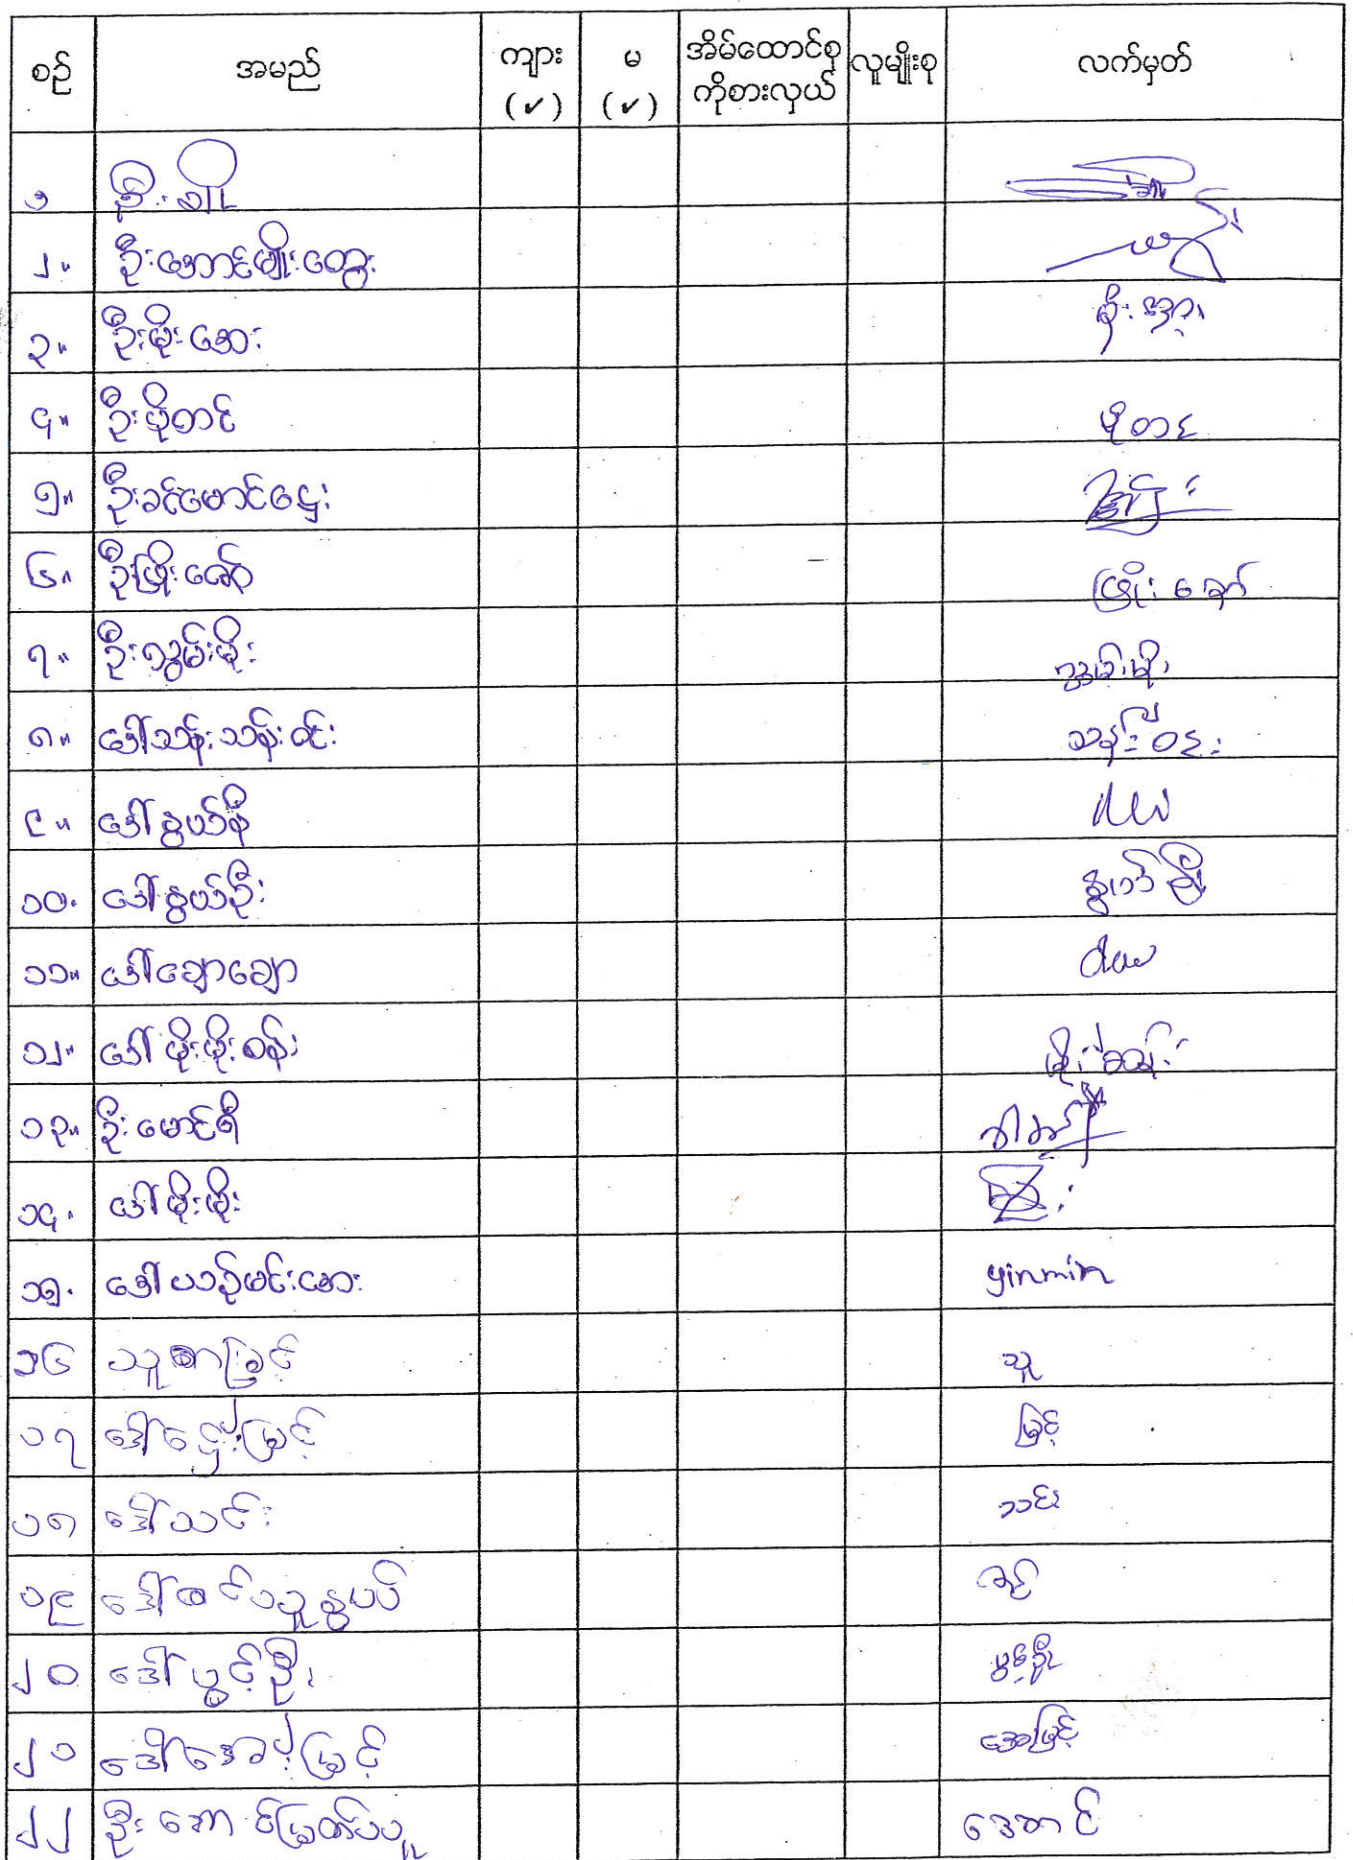 စဉ် အမည် ကျား (✓) မ (✓) အိမ်ထောင်စု ကိုစားလှယ် လူမျိုးစု လက်မှတ်
၁ ဦးချို
၂။ ဦးအောင်မျိုးထွေး
၃။ ဦးမိုးဆေး
၄။ ဦးဖိုတင် ဖိုတင်
၅။ ဦးခင်မောင်ဌေး
၆။ ဦးဖြိုးဇော် ဖြိုးဇော်
၇။ ဦးလွှမ်းမိုး လွှမ်းမိုး
၈။ ဒေါ်သန်းသန်းဝင်း သန်းဝင်း
၉။ ဒေါ်နွယ်နီ
၁၀။ ဒေါ်နွယ်ဦး နွယ်ဦး
၁၁။ ဒေါ်ချောချော
၁၂။ ဒေါ်မိုးမိုးစန်း
၁၃။ ဦးမောင်ရီ
၁၄။ ဒေါ်မိုးမိုး
၁၅။ ဒေါ်ယဉ်မင်းအေး yinmin
၁၆ သူဇာမြင့် သူ
၁၇ ဒေါ်ဌေးမြင့် မြင့်
၁၈ ဒေါ်သင်း သင်း
၁၉
၂၀ ဒေါ်ပွင့်ဦး ပွင့်ဦး
၂၁ ဒေါ်အေးမြင့် အေးမြင့်
၂၂ ဦးအောင်မြတ်သူ အောင်